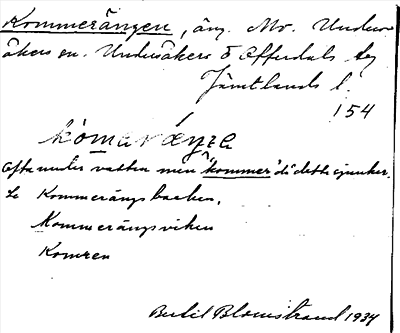 Kommerängen, äng. Mo. Under-
åkers sn. Undersåkers o Offerdals tg
Jämtlands l.
154
kömaräŋƞe
Ofta under vatten men "kommer" då detta sjunker.
Se Kommerängsbacken,
Kommerängsviken
Komren
Bertil Blomstrand 1934